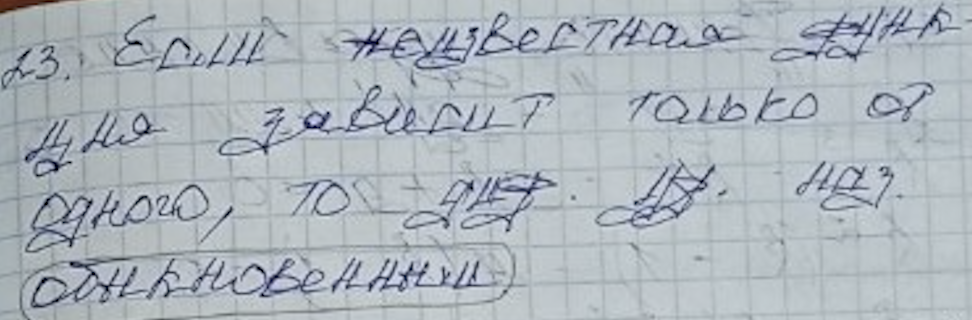 23. Если неизвестная функ
ция зависит только от
одного, то диф. ур. наз.
обыкновенным